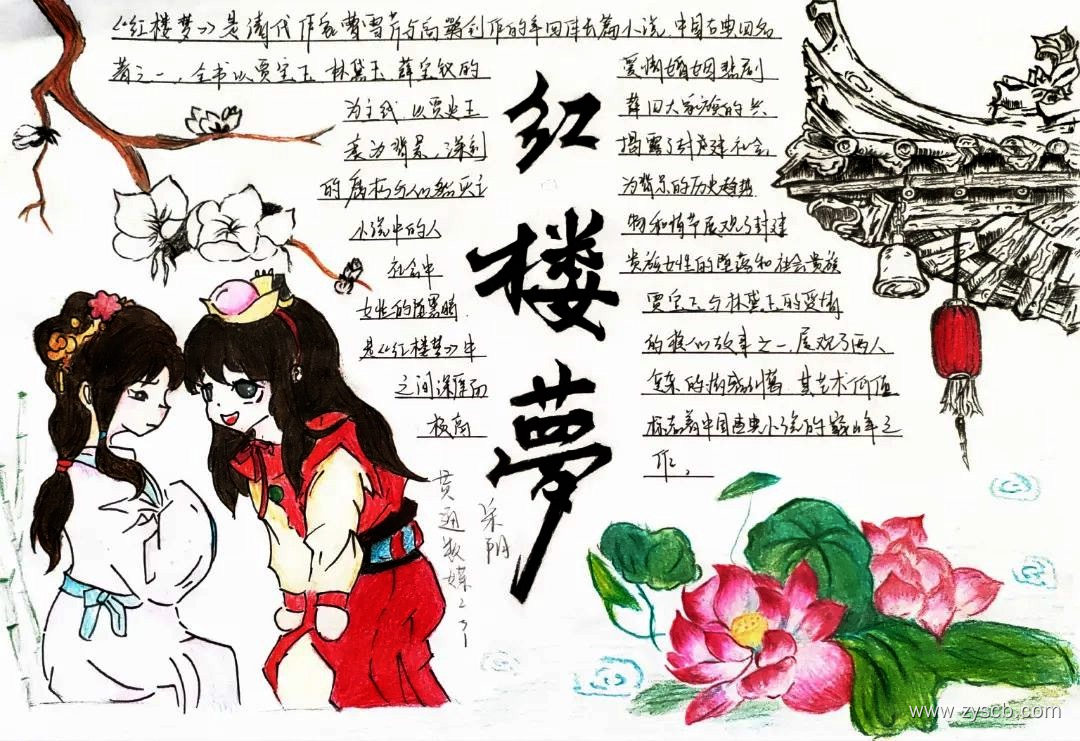 《红楼梦》是清代作家曹雪芹与高鹗创作的章回体长篇小说,中国古典四名
著之一,全书以贾宝玉、林黛玉、薛宝钗的 爱情婚姻悲剧
为主线 以贾史王 薛四大家族的兴
衰为背景,深刻 揭露了封建社会
的腐朽与 为背景的历史趋势
小说中的人 物和情节展现了封建
社会中 贵族女性的堕落和社会贵族
女性的 黑暗 贾宝玉与林黛玉的爱情
是《红楼梦》中 的核心故事之一,展现了两人
之间深厚而 复杂的情感纠葛,其艺术价值
极高 标志着中国古典小说的巅峰之
作。
红楼夢
www.zyscb.com